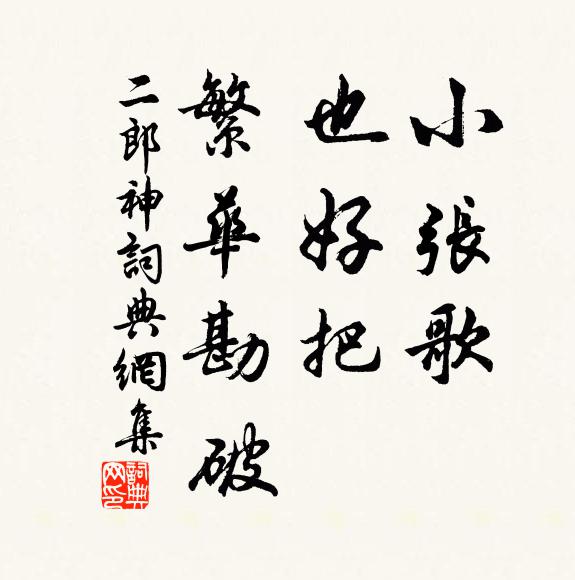 小張歌
也好把
繁華勘破
二郎神詞典網集
詞典网印